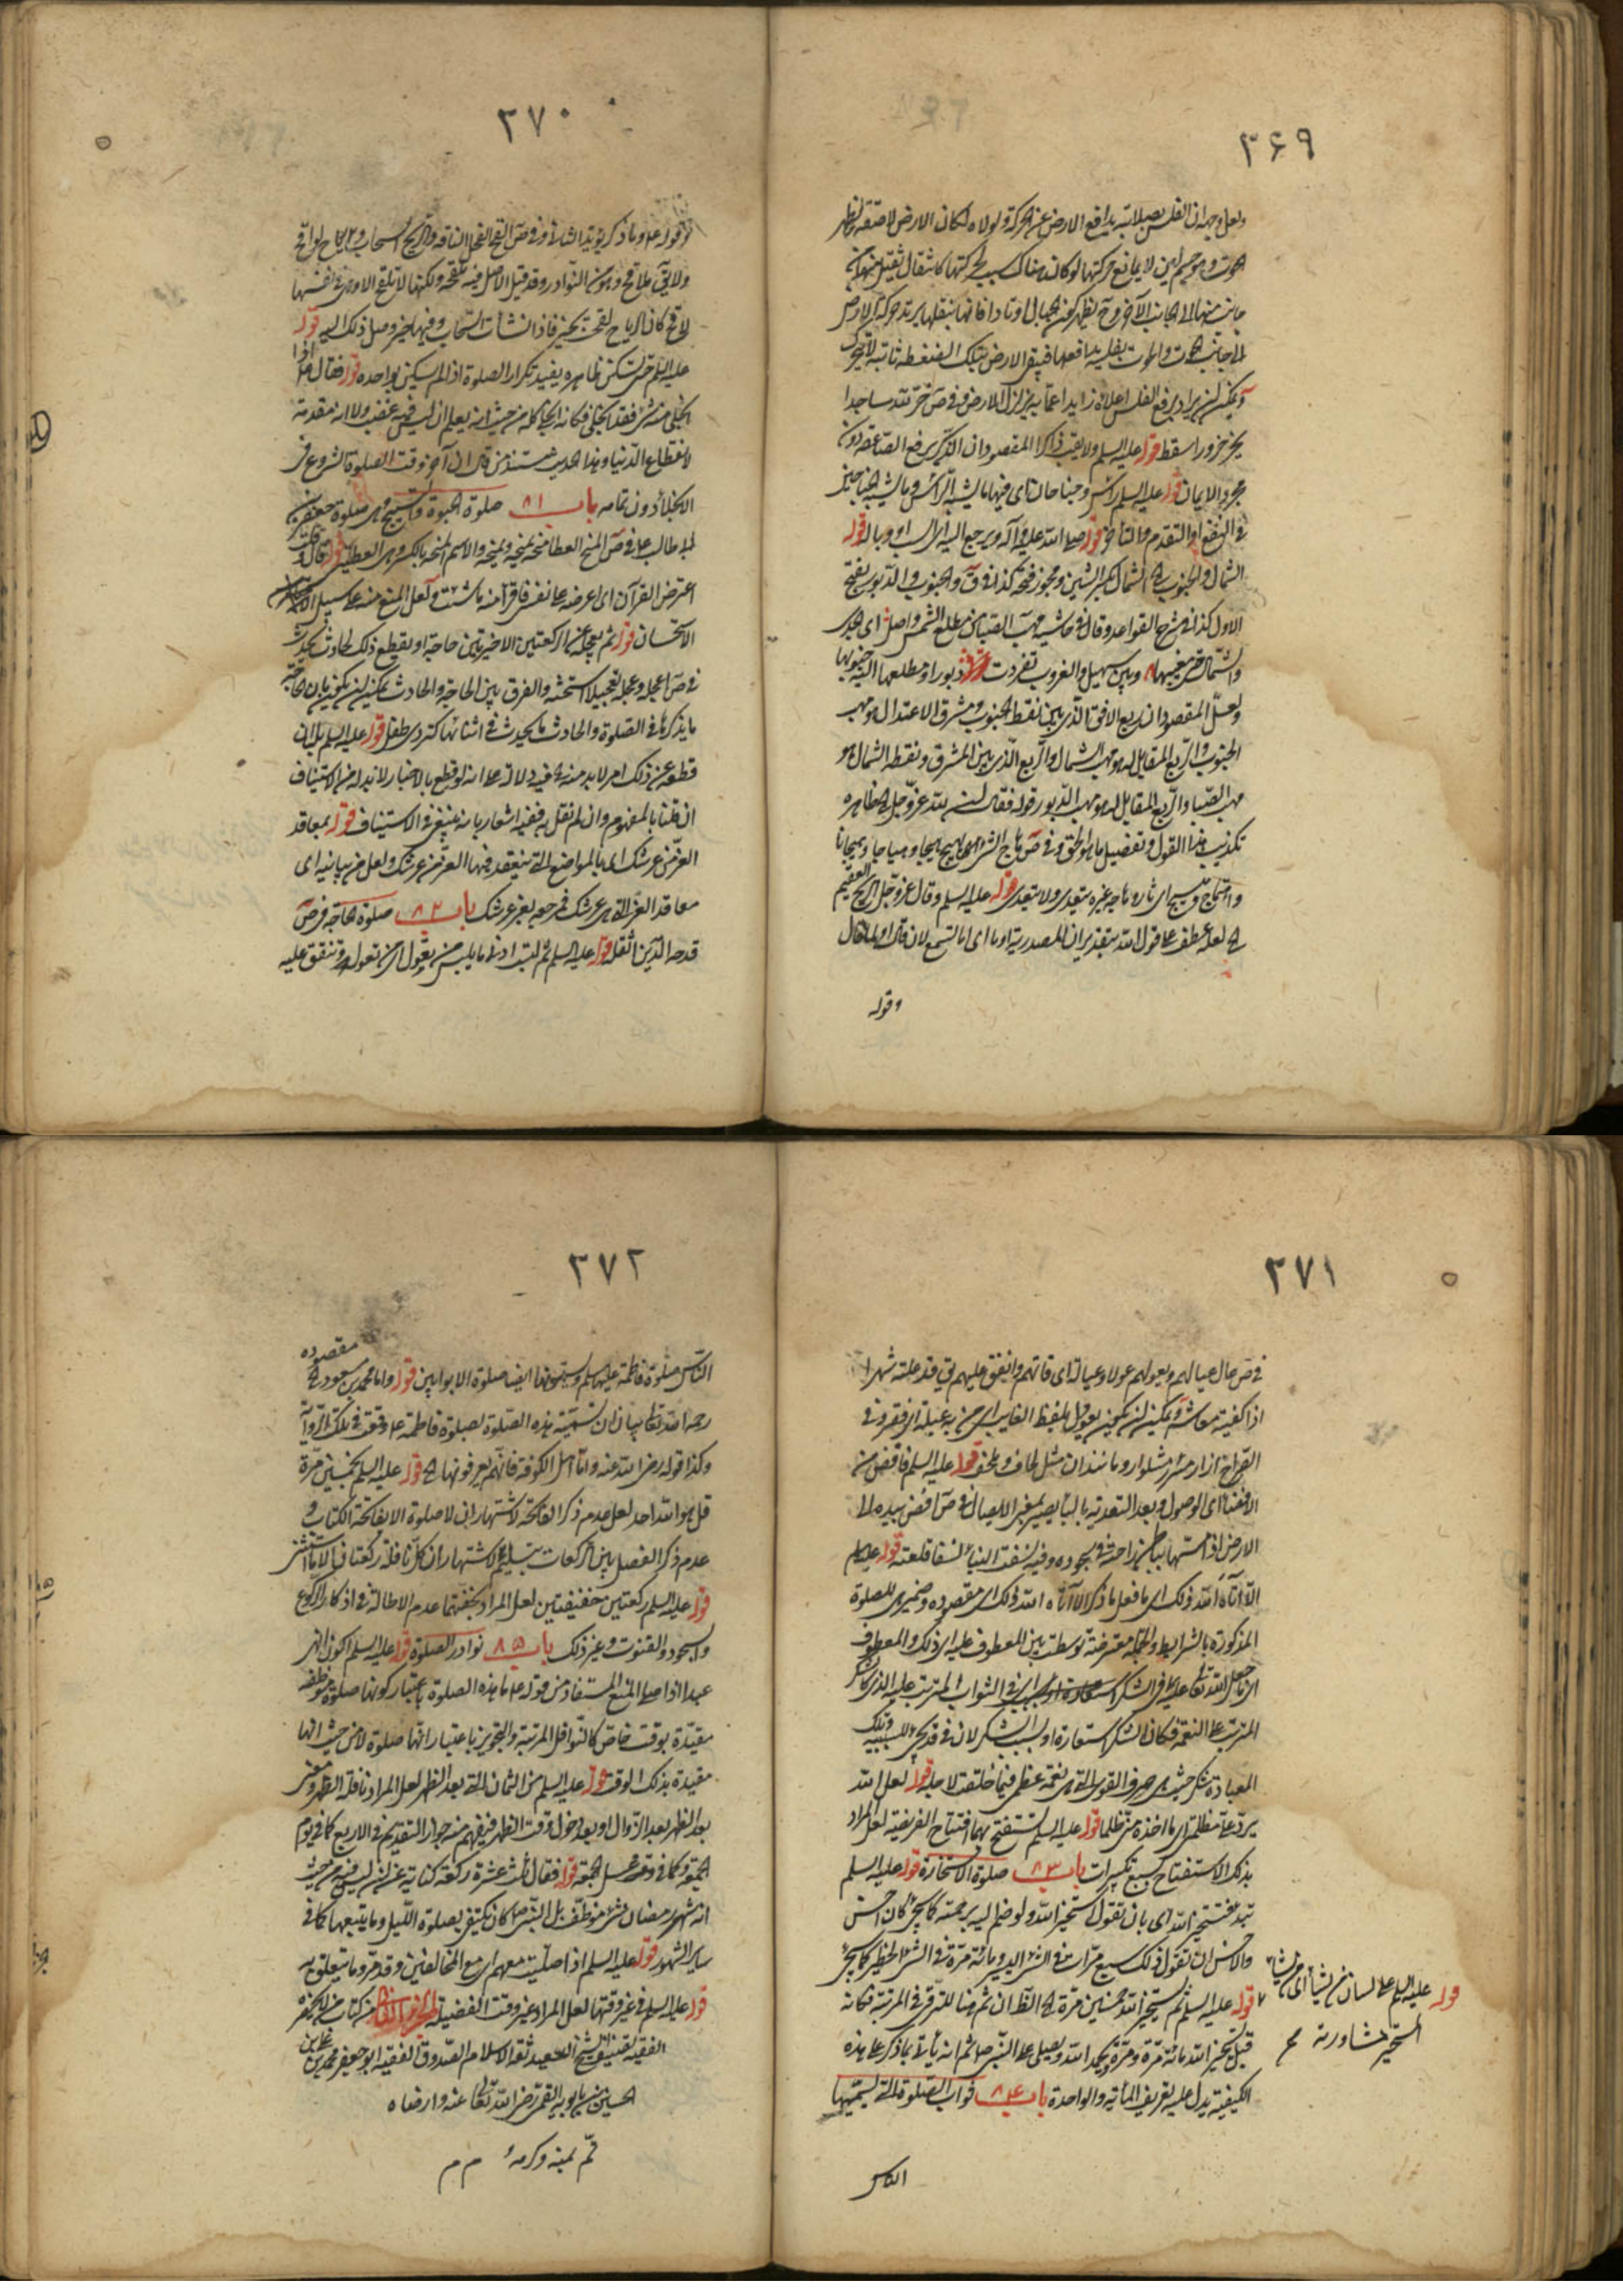 ٣۶٩
ولعل وجهه ان الفلس بصلابته يدافع الارض عن الحركة ولولاه لكان الارض
الحوت وهو جسم لين لا يمانع حركتها لو كان هناك سبب لحركتها كاثقال ثقيل
جانب منها الى الجانب الآخر وح يظهر كون الجبال اوتادا فانها بثقلها يرتد حركة الارض
الى جانب الحوت والحوت بفلسه يدافعها فيبقى الارض بتلك الضغطة ثابتة لا تتحرك
ويمكن ان يراد برفع الفلس اعلاه زايدا عما به يزلزل الارض وفي ص خر لله ساجدا
يخر خرورا سقط قوله عليه السلم ولا يقب ذاكرا المقصود ان الذكر يرفع الصاعقة دون
مجرد الايمان قوله عليه السلم رأس وجناحان اي فيها ما يشبه الرأس وما يشبه الجناحين
في النفع او التقدم والتأخر قوله صلى الله عليه وآله ويرجع اليه اي السب او وباله قوله
الشمال والجنوب الخ الشمال بكسر الشين ويجوز فتحه كذا في ق والجنوب والدبور بفتح
الاول كذا في شرح القواعد وقال في حاشيه مهب الصبا من مطلع الشمس واصل اى الجدى
والشمال من مغيبها وبين سهيل والغروب تفردت دبور او مطلعها اليه جنوبها
ولعل المقصود ان ربع الافق الذي بين نقطة الجنوب ومشرق الاعتدال هو مهب
الجنوب والربع المقابل له هو مهب الشمال والربع الذي بين المشرق ونقطة الشمال هو
مهب الصبا والربع المقابل له هو مهب الدبور قوله فقال ان لله عز وجل الخ ظاهره
تكذيب هذا القول وتفصيل ما هو الحق وفي ص هاج الشئ يهيج هيجا وهياجا وهيجانا
واهتاج وتهيج اي ثار وهاجه غيره يتعدى ولا يتعدى قوله عليه السلم وقال عز وجل الريح العقيم
الخ لعله عطف على قول الله بتقدير ان المصدرية اى اما تسمع لان قال اولا قال
وقوله
٣٧٠
وقوله ع وما ذكر يؤيد الثاني وفي ص القح الفحل الناقة والريح السحاب ورياح لواقح
ولا يق ملاقح وهو من النوادر وقد قيل الاصل فيه ملقحة ولكنها لا تلقح الا وهي في نفسها
لاقح كان الرياح لقحت بخير فاذا انشأت السحاب وفيها خير وصل ذلك اليه قوله
عليه السلم حتى تسكن ظاهره يفيد تكرار الصلوة اذا لم يسكن بواحدة قوله فقال ع اذا
انجلى منه شئ فقد انجلى فكانه انجلى كله من حيث انه يعلم ان ليس فيه غضب ولا انه مقدمة
لانقطاع الدنيا وهذا الحديث مستند من قال ان آخر وقت الصلوة الشروع في
الانجلاء دون تمامه باب ٨١ صلوة الحبوة والتسبيح وهي صلوة جعفر بن
ابى طالب ع في ص المنح العطا منحه يمنحه ويمنحه والاسم المنحة بالكسر وهي العطية قوله قال قلت
اعترض القرآن اي اعرضه على نفسي فاقرأ منه ما شئت ولعل المنع منه على سبيل
الاستحسان قوله ثم يعجله عن الركعتين الاخيرتين حاجة او يقطع ذلك لحادث يحدث
في ص اعجله وعجله تعجيلا استحثه والفرق بين الحاجة والحادث يمكن ان يكون بان الحاجة
ما يذكرها في الصلوة والحادث ما يحدث في اثنائها كتردى طفل قوله عليه السلم بلى ان
قطعه عن ذلك امر لا بد منه الخ فيه دلالة على انه لو قطع بالاختيار لا بد له من الاستيناف
ان قلنا بالمفهوم وان لم نقل به ففيه اشعار بانه ينبغي الاستيناف قوله بمعاقد
العز من عرشك اى بالمواضع التي ينعقد فيها العز من عرشك ولعل من بيانية اى
معاقد العز التي هي عرشك فمرجعه بعز عرشك باب ٨٢ صلوة الحاجة في ص
فدحه الدين اثقله قوله عليه السلم ثم لتبت ادنى ما يلبس من يعول اى من تعوله وتنفق عليه
٣٧١
في ص عال عياله ويعولهم عولا وعيالة اى قاتهم وانفق عليهم يق قد علته شهرا
اذا كفيته معاشه ويمكن ان يكون يعول بلفظ الغايب اى من به عيلة اى فقر وفي
القراح ازار مئزر مشلوار وما نندان مثل لحاف وملحف قوله عليه السلم فافض من
الافضاء اى الوصول وبعد التعدية بالباء يصير بمعنى الايصال وفي ص افضى بيده الى
الارض اذا مسها بباطن راحته في سجوده وفيه نسفت البناء نسفا قلعته قوله عليه السلم
الا آتاه الله ذلك اى ما فعل ما ذكر الا آتاه الله ذلك اى مقصوده وضمير هى للصلوة
المذكورة بالشرايط والجملة معترضة توسطت بين المعطوف عليه اى ذلك والمعطوف
المترتب على النعمة فكان الشكر استعارة او بسبب الشكر لان في قد يجئ للسببية وتلك
العبادة شكر حيث هى صرف القوى التي هى نعمة عظمى فيما خلقت لاجله قوله لعل الله
يرد على مظلمتى ما اخذه منى ظلما قوله عليه السلم تستفتح بهما افتتاح الفريضة لعل المراد
بذلك الاستفتاح بسبع تكبيرات باب ٨٣ صلوة الاستخارة قوله عليه السلم
تبدء فتستخير الله اى بان تقول استخير الله ولو ضم اليه برحمته كما يجئ كان احسن
والاحسن ان تقول ذلك سبع مرات في الشئ اليسير ومائة مرة في الشئ الخطير كما يجئ
قوله عليه السلم ثم يستخير الله خمسين مرة الخ الظ ان ثم هنا للترقى في المرتبة فكانه
قيل يستخير الله مائة مرة ومرة ويحمد الله ويصلى على النبى ص ثم انه يأتى بما ذكر على هذه
الكيفية يدل عليه تعريف المأتية والواحدة باب ٨٤ ثواب الصلوة التي يسميها
قوله عليه السلم على لسان من يشاء اى من يشاء
المستخير مشاورته
الناس
٣٧٢
الناس صلوة فاطمة عليها السلم ويسمونها ايضا صلوة الاوابين قوله واما محمد بن مسعود الخ مقصوده
رحمه الله تعالى بيان ان تسمية هذه الصلوة بصلوة فاطمة ع وقعت في تلك الرواية
وكذا قوله رضى الله عنه واما اهل الكوفة فانهم يعرفونها الخ قوله عليه السلم بخمسين مرة
قل هو الله احد لعل عدم ذكر الفاتحة لاشتهار ان لا صلوة الا بفاتحة الكتاب و
عدم ذكر الفصل بين الركعات بتسليم لاشتهار ان كل نافلة ركعتان الا ما استثنى
قوله عليه السلم ركعتين خفيفتين لعل المراد بخفتهما عدم الاطالة في اذكار الركوع
والسجود والقنوت وغير ذلك باب ٨۵ نوادر الصلوة قوله عليه السلم اكون انهى
عبدا اذا صلى المنع المستفاد من قوله ع ما هذه الصلوة باعتبار كونها صلوة موظفة
مقيدة بوقت خاص كالنوافل المرتبة والتجويز باعتبار انها صلوة لا من حيث انها
مقيدة بذلك الوقت قوله عليه السلم من الثمان التي بعد الظهر لعل المراد نافلة الظهر ومعنى
بعد الظهر بعد الزوال او بعد دخول وقت الظهر فيفهم منه جواز التقديم في الاربع كما في يوم
الجمعة وكما في وقت غسل الجمعة قوله فقال ثلث عشرة ركعة كناية عن ان ليس فيه من حيث
انه شهر رمضان شئ موظف بل النبى ص كان يكتفى بصلوة الليل وما يتبعها كما في
ساير الشهور قوله عليه السلم اذا صليت معهم اى مع المخالفين وقد مر وما يتعلق به
قوله عليه السلم في غير وقتها لعل المراد غير وقت الفضيلة من كتاب من لا يحضره
الفقيه تصنيف الشيخ السعيد ثقة الاسلام الصدوق الفقيه ابو جعفر محمد بن على بن
الحسين بن بابويه القمى رضى الله تعالى عنه وارضاه
تم بمنه وكرمه م م